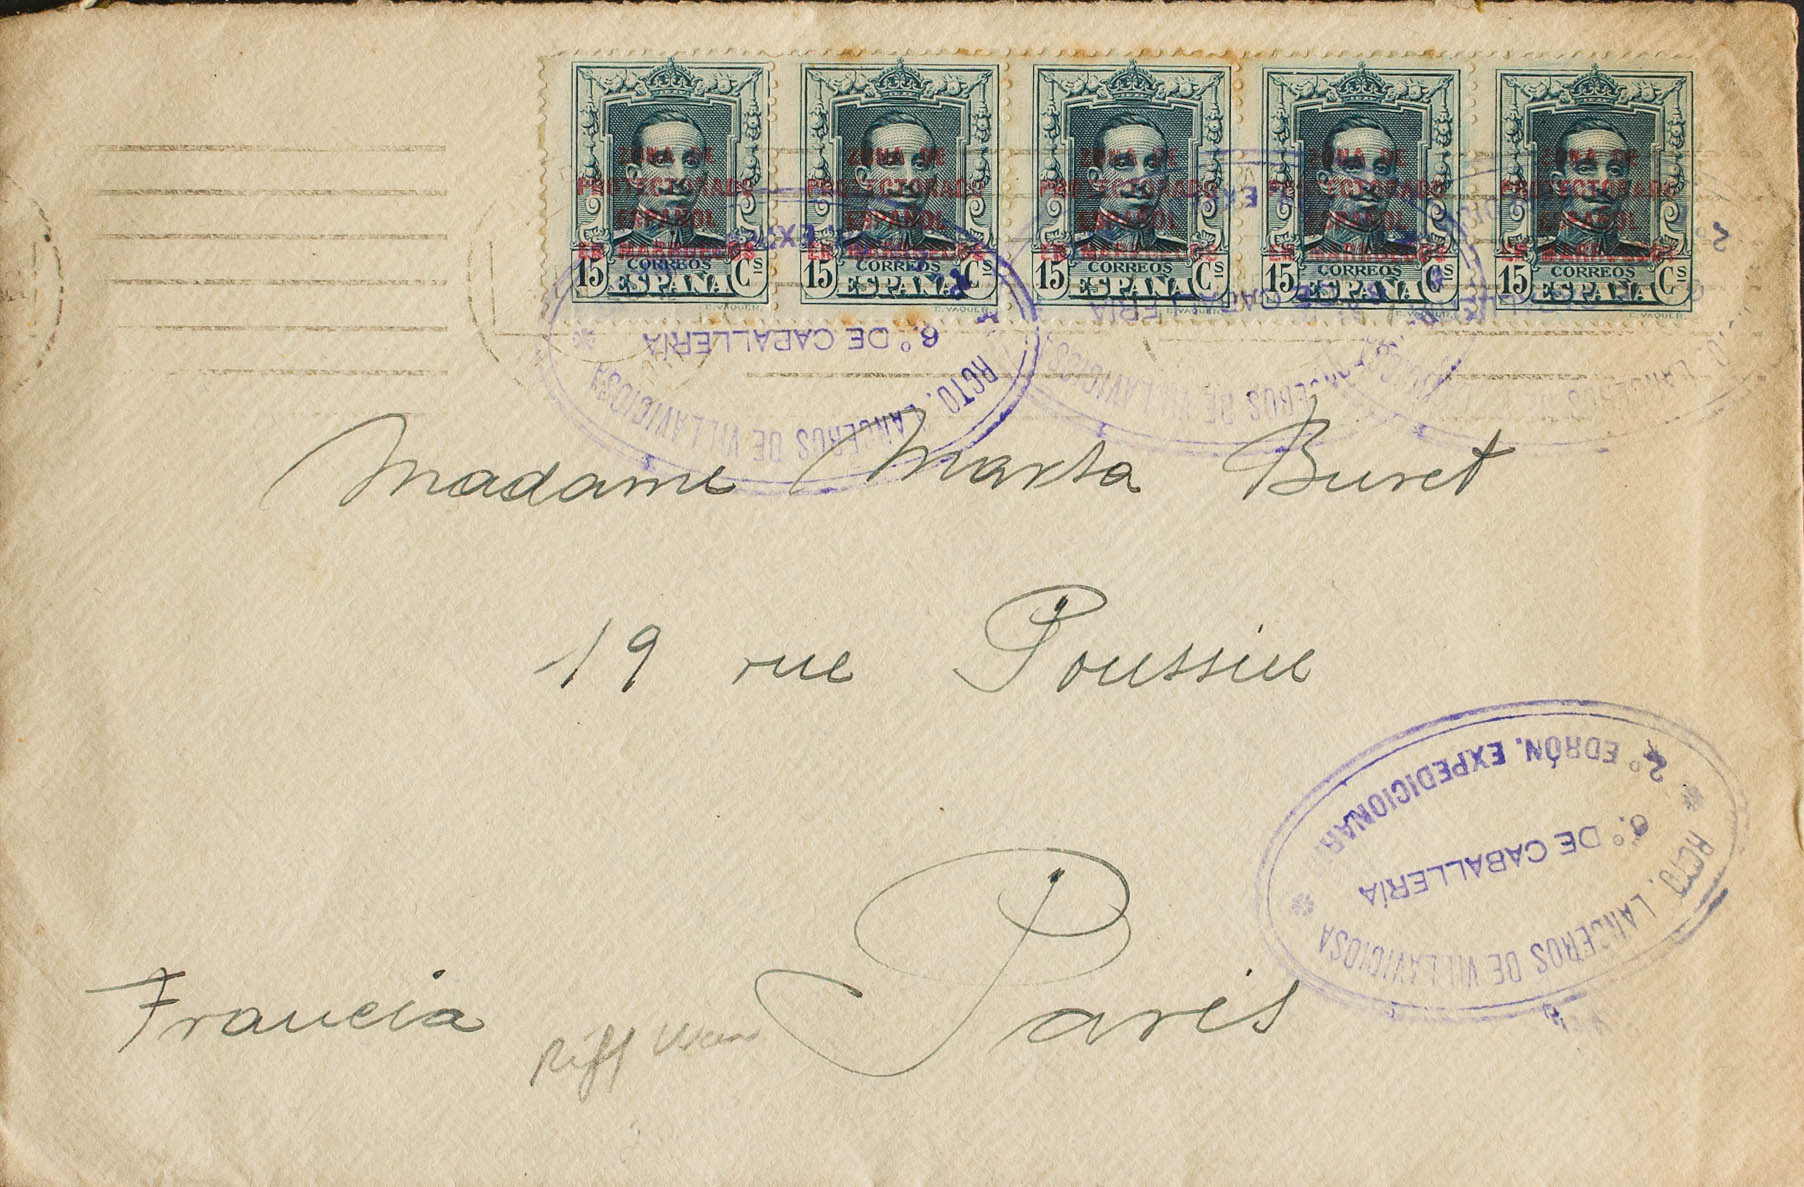 ZONA DE
PROTECTORADO
ESPAÑOL
EN MARRUECOS
15 CORREOS Cs
ESPAÑA
E. VAQUER.
ZONA DE
PROTECTORADO
ESPAÑOL
EN MARRUECOS
15 CORREOS Cs
ESPAÑA
ZONA DE
PROTECTORADO
ESPAÑOL
EN MARRUECOS
15 CORREOS Cs
ESPAÑA
E. VAQUER.
ZONA DE
PROTECTORADO
ESPAÑOL
EN MARRUECOS
15 CORREOS Cs
ESPAÑA
ZONA DE
PROTECTORADO
ESPAÑOL
EN MARRUECOS
15 CORREOS Cs
ESPAÑA
E. VAQUER.
RGTO. LANCEROS DE VILLAVICIOSA
6.º DE CABALLERÍA
Madame Marta Buret
19 rue Poussin
Paris
Francia
Riff
RGTO. LANCEROS DE VILLAVICIOSA
6.º DE CABALLERÍA
2.º EDRÓN. EXPEDICIONAR